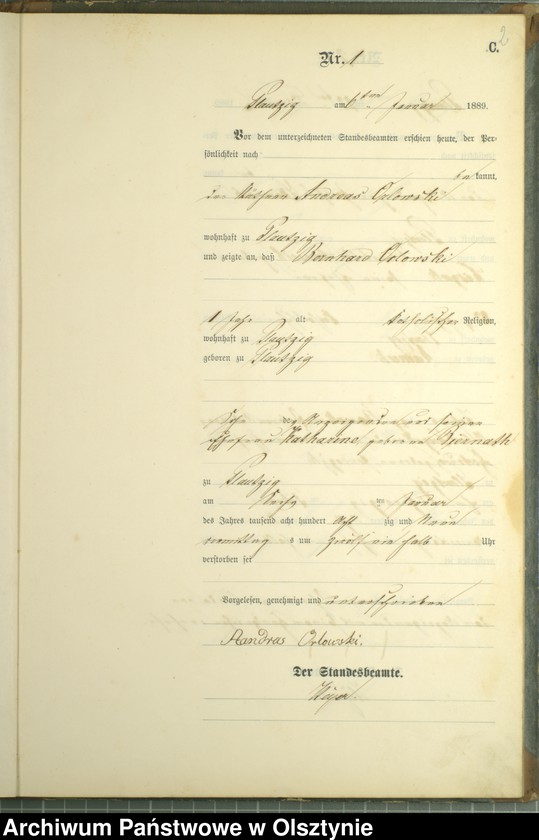 2
C.
Nr. 1
Plautzig am 6 ten Januar 1889.
Vor dem unterzeichneten Standesbeamten erschien heute, der Per-
sönlichkeit nach
bekannt,
der Käthner Andreas Orlowski
wohnhaft zu Plautzig
und zeigte an, daß Bernhard Orlowski
1 Jahr alt katholischer Religion,
wohnhaft zu Plautzig
geboren zu Plautzig
Sohn des Anzeigenden und seiner
Ehefrau Katharina geborene Biernath
zu Plautzig
am Sechs ten Januar
des Jahres tausend acht hundert acht zig und Neun
vormittag s um Uhr
verstorben sei
Vorgelesen, genehmigt und unterschrieben
Aandras Orlowski.
Der Standesbeamte.
Archiwum Państwowe w Olsztynie